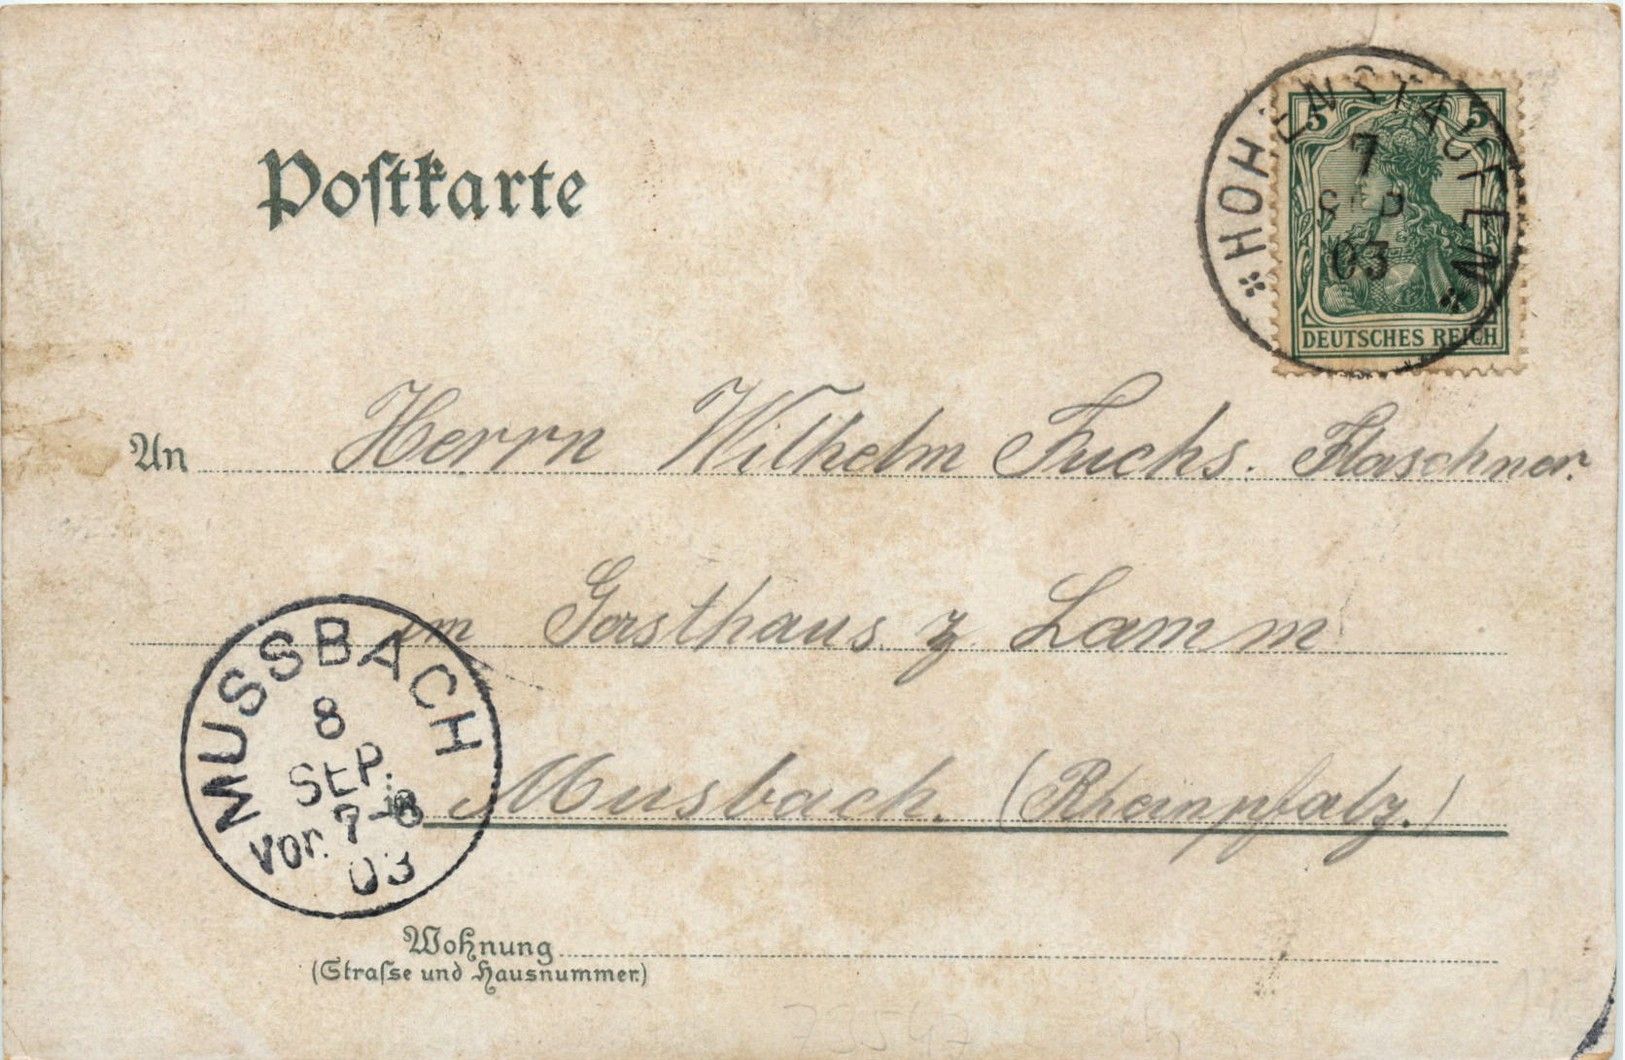 Postkarte
HOHENSTAUFEN
5 5
7
SEP
03
DEUTSCHES REICH
An Herrn Wilhelm Fuchs. Flaschner.
im Gasthaus z. Lamm
Musbach. (Rheinpfalz.)
MUSSBACH
8
SEP.
Vor. 7-8
03
Wohnung
(Strasse und Hausnummer)